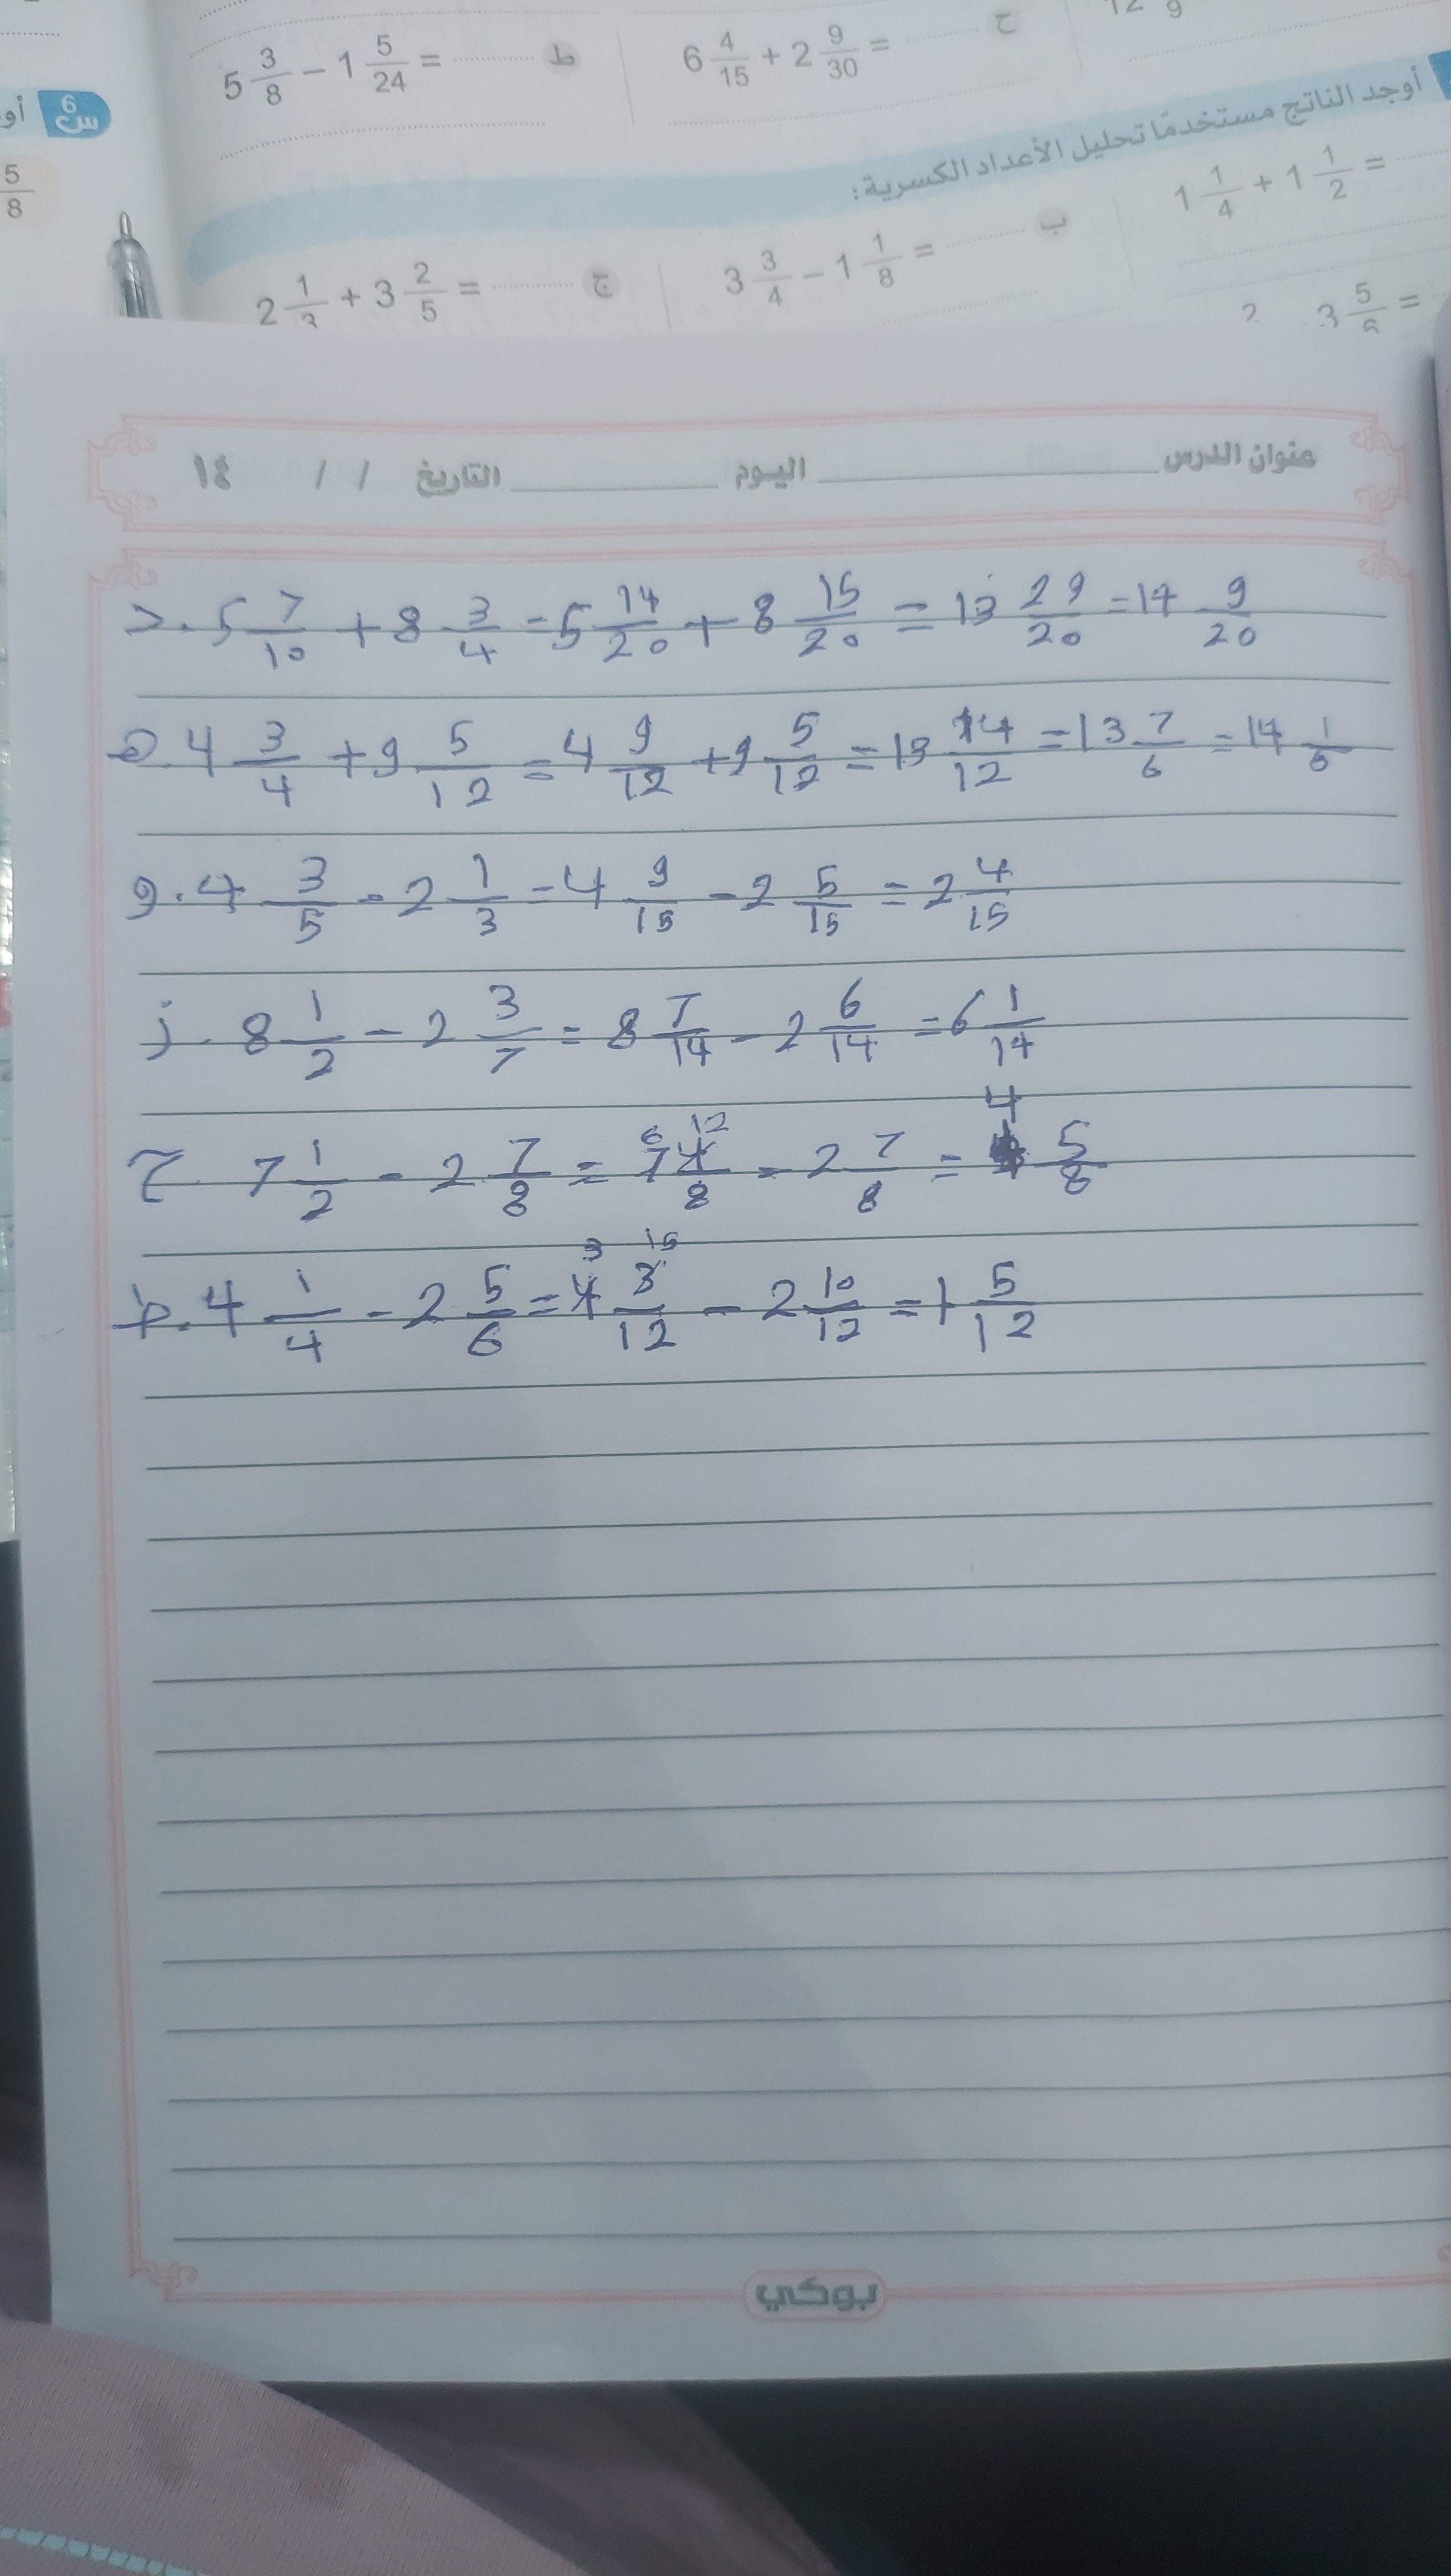 12 9
ح 6 4/15 + 2 9/30 = ............
ط 5 3/8 − 1 5/24 = ............
س 6 أو
5/8
أوجد الناتج مستخدمًا تحليل الأعداد الكسرية:
1 1/4 + 1 1/2 =
ب 3 3/4 − 1 1/8 = ............
ج 2 1/3 + 3 2/5 = ............
3 5/ =
عنوان الدرس ______ اليوم ______ التاريخ / / ١٤
د. 5 7/10 + 8 3/4 = 5 14/20 + 8 15/20 = 13 29/20 = 14 9/20
ه. 4 3/4 + 9 5/12 = 4 9/12 + 9 5/12 = 13 14/12 = 13 7/6 = 14 1/6
و. 4 3/5 - 2 1/3 = 4 9/15 - 2 5/15 = 2 4/15
ز. 8 1/2 - 2 3/7 = 8 7/14 - 2 6/14 = 6 1/14
ح 7 1/2 - 2 7/8 = 6 12 7 4/8 - 2 7/8 = 4 5/8
ط. 4 1/4 - 2 5/6 = 3 15 4 3/12 - 2 10/12 = 1 5/12
بوكي